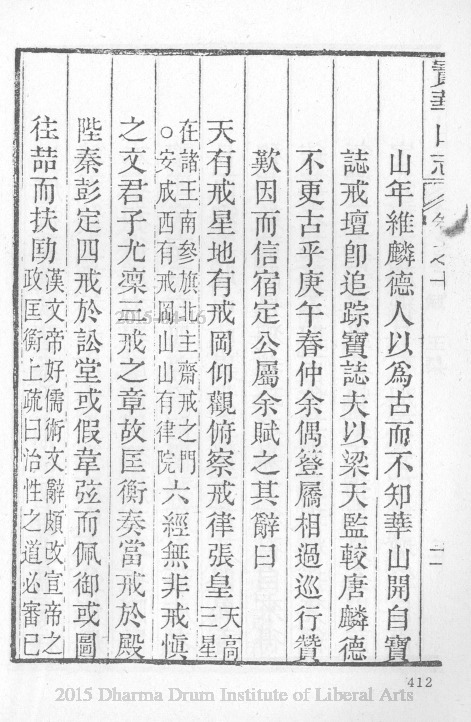 寶華山志
卷之十
山年維麟德人以爲古而不知華山開自寶
誌戒壇卽追踪寶誌夫以梁天監較唐麟德
不更古乎庚午春仲余偶簦屩相過巡行贊
歎因而信宿定公屬余賦之其辭曰
天有戒星地有戒岡仰觀俯察戒律張皇天高三星
在諸王南參旗北主齋戒之門○安成西有戒岡山山有律院六經無非戒愼
之文君子尤凜三戒之章故匡衡奏當戒於殿
陛秦彭定四戒於訟堂或假韋弦而佩御或圖
往喆而扶勖漢文帝好儒術文辭頗改宣帝之政匡衡上疏曰治性之道必審己
2015-04-16
412
2015 Dharma Drum Institute of Liberal Arts